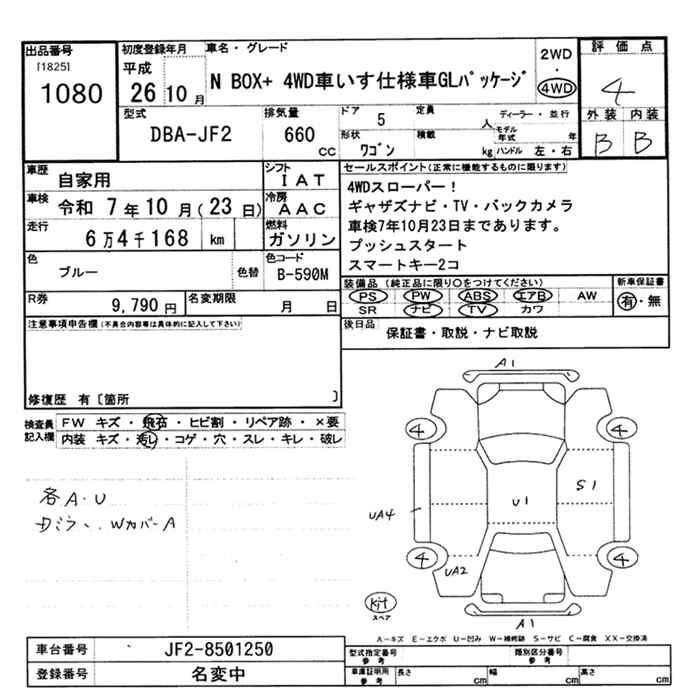 出品番号
[1825]
1080
初度登録年月
平成
26 10月
車名・グレード
N BOX+ 4WD車いす仕様車GLパッケージ
2WD
・
4WD
評価点
4
外装 内装
B B
型式
DBA-JF2
排気量
660
cc
ドア 5
形状 ワゴン
定員 人
積載 kg
ディーラー・並行
モデル年式 年
ハンドル 左・右
車歴
自家用
車検 令和 7年10月(23日)
走行 6万4千168 km
シフト
IAT
冷房
AAC
燃料
ガソリン
色
ブルー
色替
色コード
B-590M
R券
9,790円
名変期限
月 日
セールスポイント(正常に機能するものに限ります)
4WDスローパー!
ギャザズナビ・TV・バックカメラ
車検7年10月23日まであります。
プッシュスタート
スマートキー2コ
装備品 (純正品に限り○をつけてください)
PS PW ABS エアB AW
SR ナビ TV カワ
新車保証書
有・無
後日品
保証書・取説・ナビ取説
注意事項申告欄(不具合内容等は具体的に記入して下さい)
修復歴 有〔箇所 〕
検査員記入欄
FW キズ・飛石・ヒビ割・リペア跡・×要
内装 キズ・汚レ・コゲ・穴・スレ・キレ・破レ
各A・U
Wカバー A
A1
4 4
S1
U1
UA4
4 4
UA2
kit
スペア
A1
A―キズ E―エクボ U―凹み W―補修跡 S―サビ C―腐食 XX―交換済
車台番号
JF2-8501250
登録番号
名変中
型式指定番号
参考
類別区分番号
参考
車庫証明用
参考
長さ cm
幅 cm
高さ cm